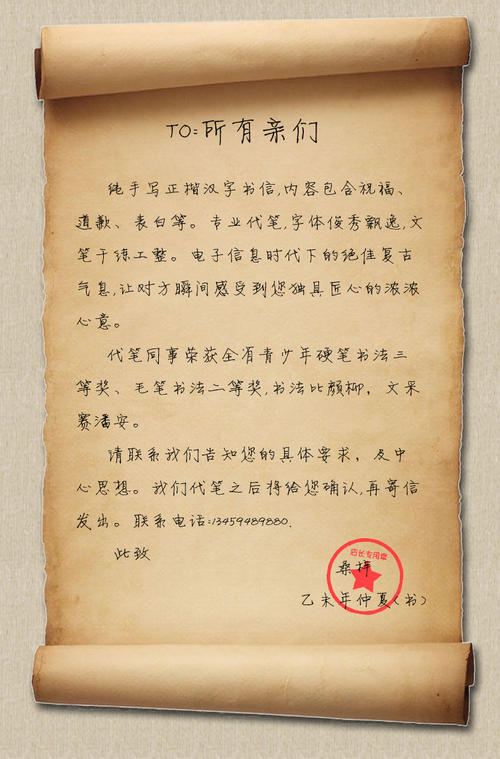 TO:所有亲们
纯手写正楷汉字书信,内容包含祝福、
道歉、表白等。专业代笔,字体俊秀飘逸,文
笔干练工整。电子信息时代下的绝佳复古
气息,让对方瞬间感受到您独具匠心的浓浓
心意。
代笔同事荣获全省青少年硬笔书法三
等奖、毛笔书法二等奖,书法比颜柳，文采
赛潘安。
请联系我们告知您的具体要求，及中
心思想。我们代笔之后将给您确认,再寄信
发出。联系电话:13459489880.
此致
店长专用章
桑梓
乙未年仲夏(书)